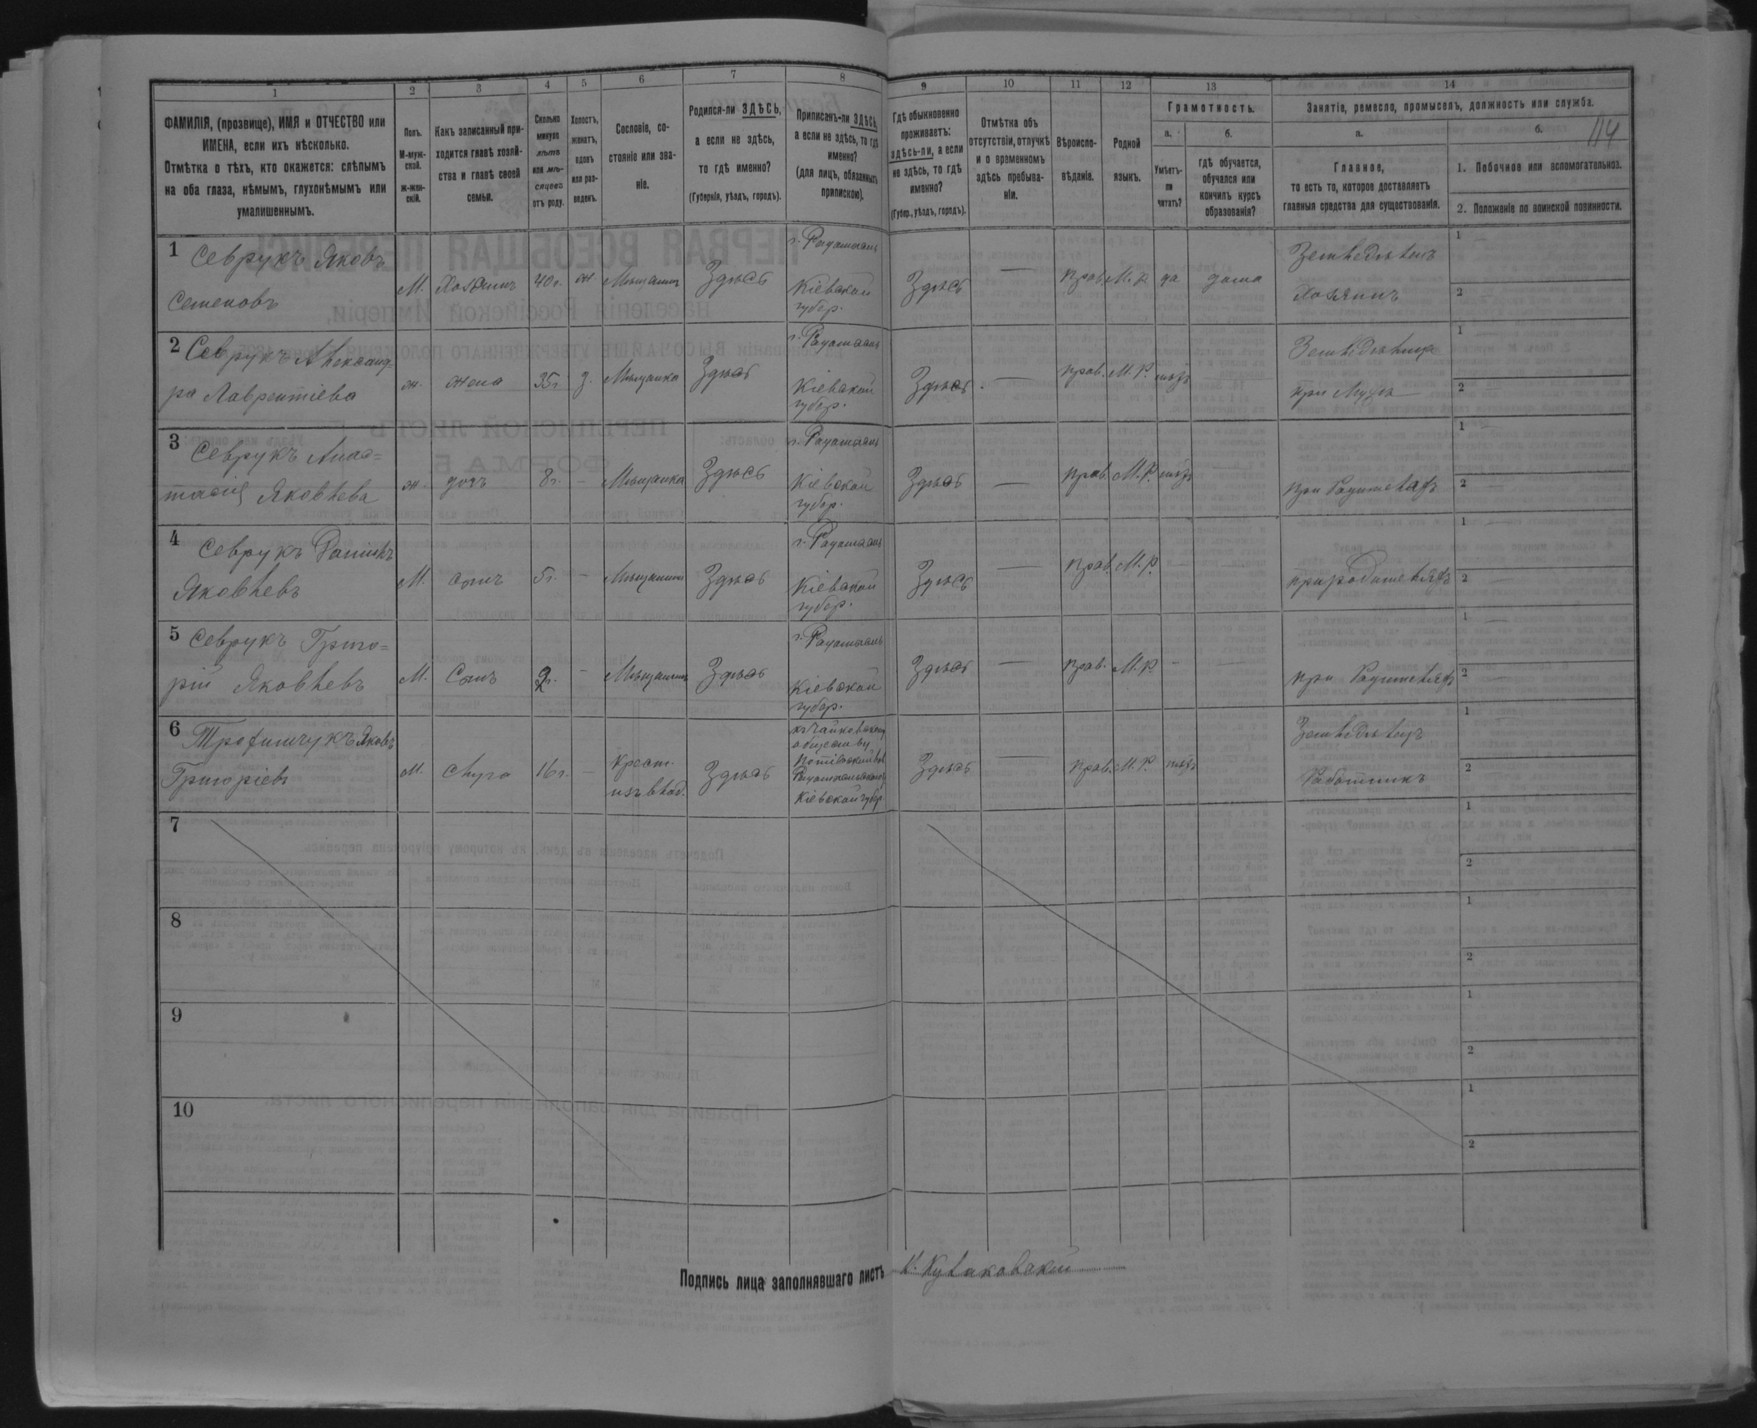 114
1 2 3 4 5 6 7 8 9 10 11 12 13 14
ФАМИЛІЯ, (прозвище), ИМЯ и ОТЧЕСТВО или
ИМЕНА, если ихъ нѣсколько.
Отмѣтка о тѣхъ, кто окажется: слѣпымъ
на оба глаза, нѣмымъ, глухонѣмымъ или
умалишеннымъ.
Полъ.
М-муж-
ской.
Ж-жен-
скій.
Какъ записанный при-
ходится главѣ хозяй-
ства и главѣ своей
семьи.
Сколько
минуло
лѣтъ
или мѣ-
сяцевъ
отъ роду.
Холостъ,
женатъ,
вдовъ
или раз-
веденъ.
Сословіе, со-
стояніе или зва-
ніе.
Родился-ли ЗДѢСЬ,
а если не здѣсь,
то гдѣ именно?
(Губернія, уѣздъ, городъ).
Приписанъ-ли ЗДѢСЬ,
а если не здѣсь, то гдѣ
именно?
(для лицъ, обязанныхъ
припискою).
Гдѣ обыкновенно
проживаетъ:
здѣсь-ли, а если
не здѣсь, то гдѣ
именно?
(Губер., уѣздъ, городъ).
Отмѣтка объ
отсутствіи, отлучкѣ
и о временномъ
здѣсь пребыва-
ніи.
Вѣроиспо-
вѣданіе.
Родной
языкъ.
Грамотность.
а.
Умѣетъ-
ли
читать?
б.
гдѣ обучается,
обучался или
кончилъ курсъ
образованія?
Занятіе, ремесло, промыселъ, должность или служба.
а.
Главное,
то есть то, которое доставляетъ
главныя средства для существованія.
б.
1. Побочное или вспомогательное.
2. Положеніе по воинской повинности.
1 Севрукъ Яковъ
Семеновъ
М. Хозяинъ 40 г. ж Мѣщанинъ Здѣсь
Кіевской
губер.
Здѣсь — Прав. М.Р. да дома
Земледѣлецъ
Хозяинъ
1 —
2 —
2 Севрукъ Александ
ра Лаврентіева
ж. жена 35 г. з. Мѣщанка Здѣсь
Кіевской
губер.
Здѣсь. — Прав. М.Р. нѣтъ
при Мужѣ
1 —
2 —
3 Севрукъ Анас=
тасія Яковлева
ж. дочь 8 г. — Мѣщанка Здѣсь
Кіевской
губер.
Здѣсь — Прав. М.Р. нѣтъ —
При Родителяхъ
1 —
2 —
4 Севрукъ
Яковлевъ
М. сынъ 5 г. — Мѣщанинъ Здѣсь
Кіевской
губер.
Здѣсь — Прав. М.Р. — —
при родителяхъ
1 —
2 —
5 Севрукъ Григо=
рій Яковлевъ
М. Сынъ 2 г. — Мѣщанинъ Здѣсь
Кіевской
губер.
Здѣсь — Прав. М.Р. — —
при Родителяхъ
1 —
2 —
6 Трофимчукъ Яковъ
Григоріевъ
М. слуга 16 г. — Крест.
изъ влад.
Здѣсь
обществу
Кіевской губер
Здѣсь — Прав. М.Р. нѣтъ
Земледѣлецъ
Работникъ
1 —
2 —
7
1
2
8
1
2
9
1
2
10
1
2
Подпись лица заполнявшаго листъ